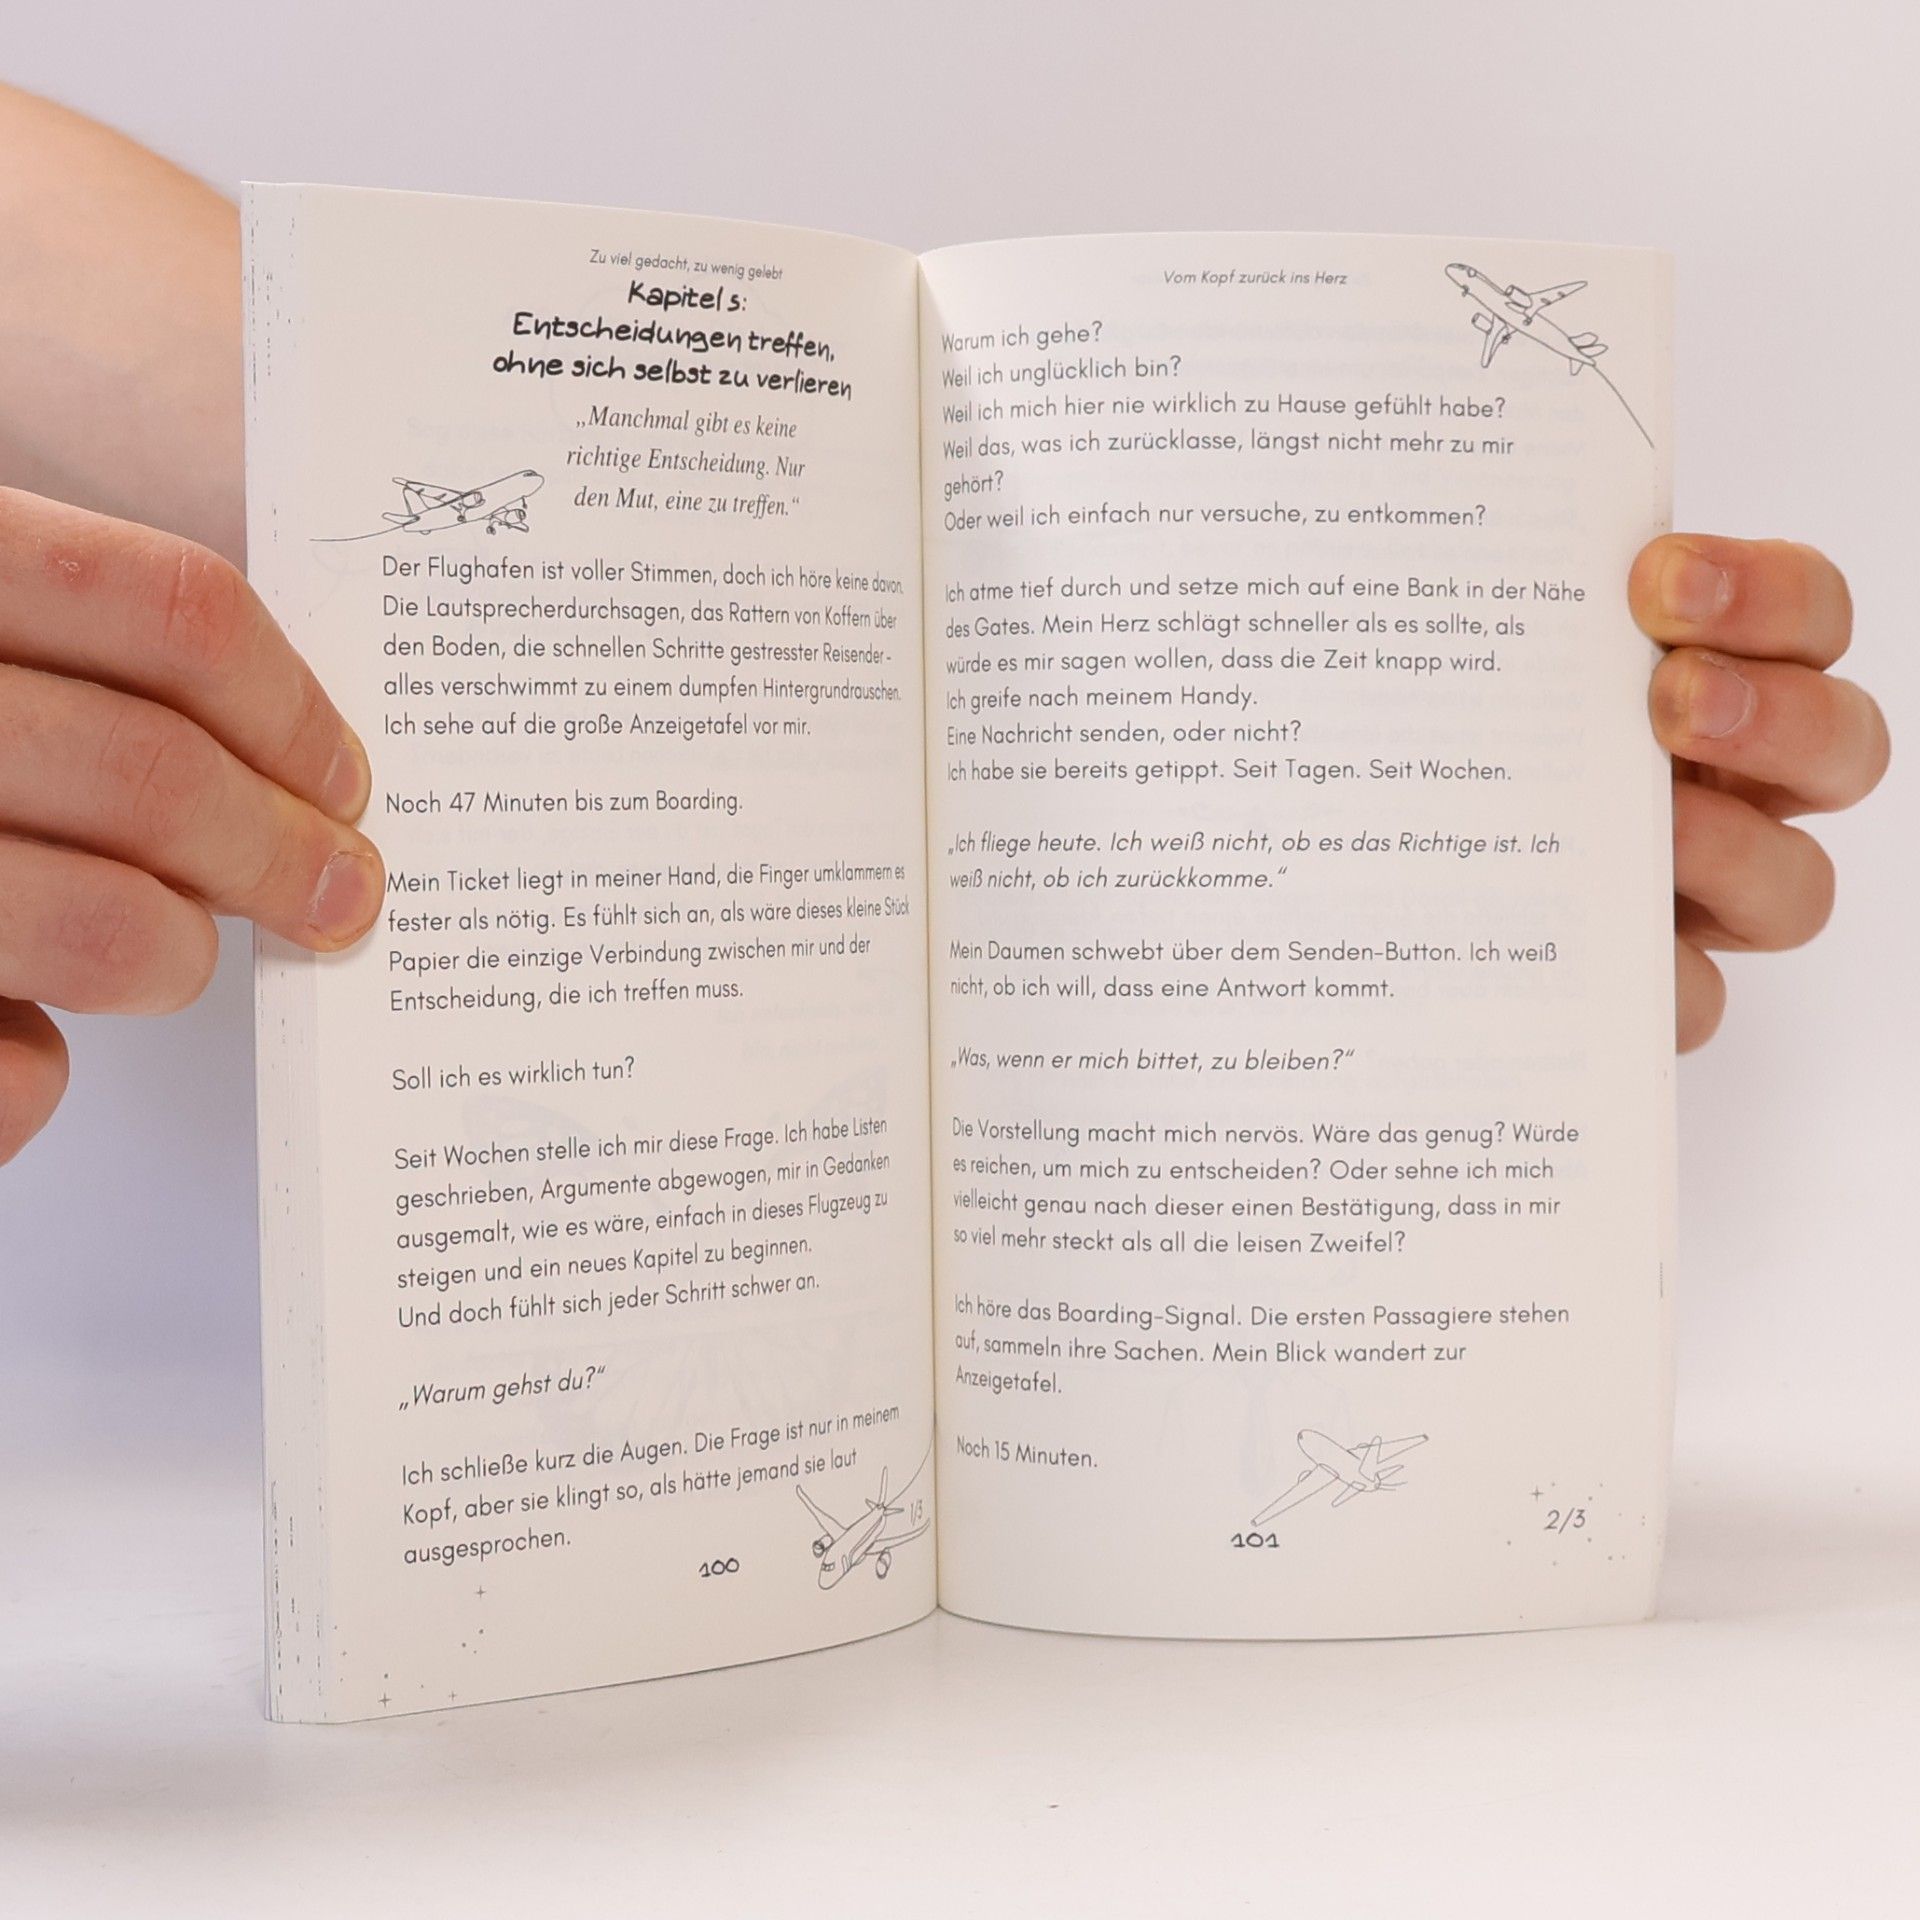 Zu viel gedacht, zu wenig gelebt
Kapitel 5:
Entscheidungen treffen,
ohne sich selbst zu verlieren
„Manchmal gibt es keine
richtige Entscheidung. Nur
den Mut, eine zu treffen.“
Der Flughafen ist voller Stimmen, doch ich höre keine davon.
Die Lautsprecherdurchsagen, das Rattern von Koffern über
den Boden, die schnellen Schritte gestresster Reisender -
alles verschwimmt zu einem dumpfen Hintergrundrauschen.
Ich sehe auf die große Anzeigetafel vor mir.
Noch 47 Minuten bis zum Boarding.
Mein Ticket liegt in meiner Hand, die Finger umklammern es
fester als nötig. Es fühlt sich an, als wäre dieses kleine Stück
Papier die einzige Verbindung zwischen mir und der
Entscheidung, die ich treffen muss.
Soll ich es wirklich tun?
Seit Wochen stelle ich mir diese Frage. Ich habe Listen
geschrieben, Argumente abgewogen, mir in Gedanken
ausgemalt, wie es wäre, einfach in dieses Flugzeug zu
steigen und ein neues Kapitel zu beginnen.
Und doch fühlt sich jeder Schritt schwer an.
„Warum gehst du?“
Ich schließe kurz die Augen. Die Frage ist nur in meinem
Kopf, aber sie klingt so, als hätte jemand sie laut
ausgesprochen.
1/3
100
Vom Kopf zurück ins Herz
Warum ich gehe?
Weil ich unglücklich bin?
Weil ich mich hier nie wirklich zu Hause gefühlt habe?
Weil das, was ich zurücklasse, längst nicht mehr zu mir
gehört?
Oder weil ich einfach nur versuche, zu entkommen?
Ich atme tief durch und setze mich auf eine Bank in der Nähe
des Gates. Mein Herz schlägt schneller als es sollte, als
würde es mir sagen wollen, dass die Zeit knapp wird.
Ich greife nach meinem Handy.
Eine Nachricht senden, oder nicht?
Ich habe sie bereits getippt. Seit Tagen. Seit Wochen.
„Ich fliege heute. Ich weiß nicht, ob es das Richtige ist. Ich
weiß nicht, ob ich zurückkomme.“
Mein Daumen schwebt über dem Senden-Button. Ich weiß
nicht, ob ich will, dass eine Antwort kommt.
„Was, wenn er mich bittet, zu bleiben?“
Die Vorstellung macht mich nervös. Wäre das genug? Würde
es reichen, um mich zu entscheiden? Oder sehne ich mich
vielleicht genau nach dieser einen Bestätigung, dass in mir
so viel mehr steckt als all die leisen Zweifel?
Ich höre das Boarding-Signal. Die ersten Passagiere stehen
auf, sammeln ihre Sachen. Mein Blick wandert zur
Anzeigetafel.
Noch 15 Minuten.
2/3
101